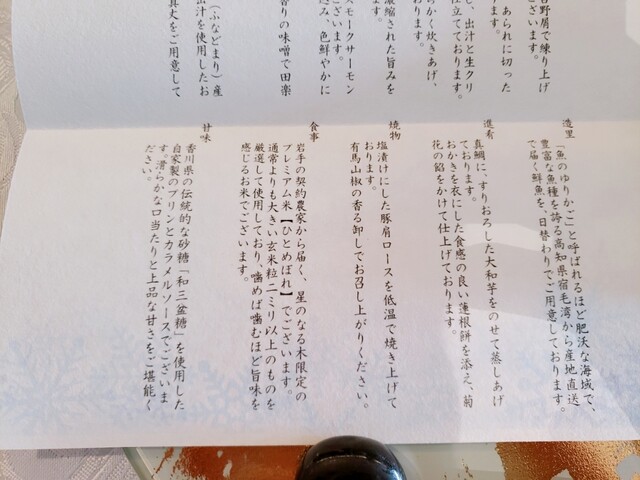 吉野葛で練り上げ
ございます。
、あられに切った
ります。
し、出汁と生クリ
仕立てております。
らかく炊きあげ、
おります。
濃縮された旨みを
ます。
スモークサーモン
ございます。
込み、色鮮やかに
香りの味噌で田楽
（ふなどまり）産
出汁を使用したお
真丈をご用意して
造里
「魚のゆりかご」と呼ばれるほど肥沃な海域で、
豊富な魚種を誇る高知県宿毛湾から産地直送
で届く鮮魚を、日替わりでご用意しております。
進肴
真鯛に、すりおろした大和芋をのせて蒸しあげ
ております。
おかきを衣にした食感の良い蓮根餅を添え、菊
花の餡をかけて仕上げております。
焼物
塩漬けにした豚肩ロースを低温で焼き上げて
おります。
有馬山椒の香る卸しでお召し上がりください。
食事
岩手の契約農家から届く、星のなる木限定の
プレミアム米【ひとめぼれ】でございます。
通常よりも大きい玄米粒二ミリ以上のものを
厳選して使用しており、噛めば噛むほど旨味を
感じるお米でございます。
甘味
香川県の伝統的な砂糖「和三盆糖」を使用した
自家製のプリンとカラメルソースでございま
す。滑らかな口当たりと上品な甘さをご堪能く
ださい。